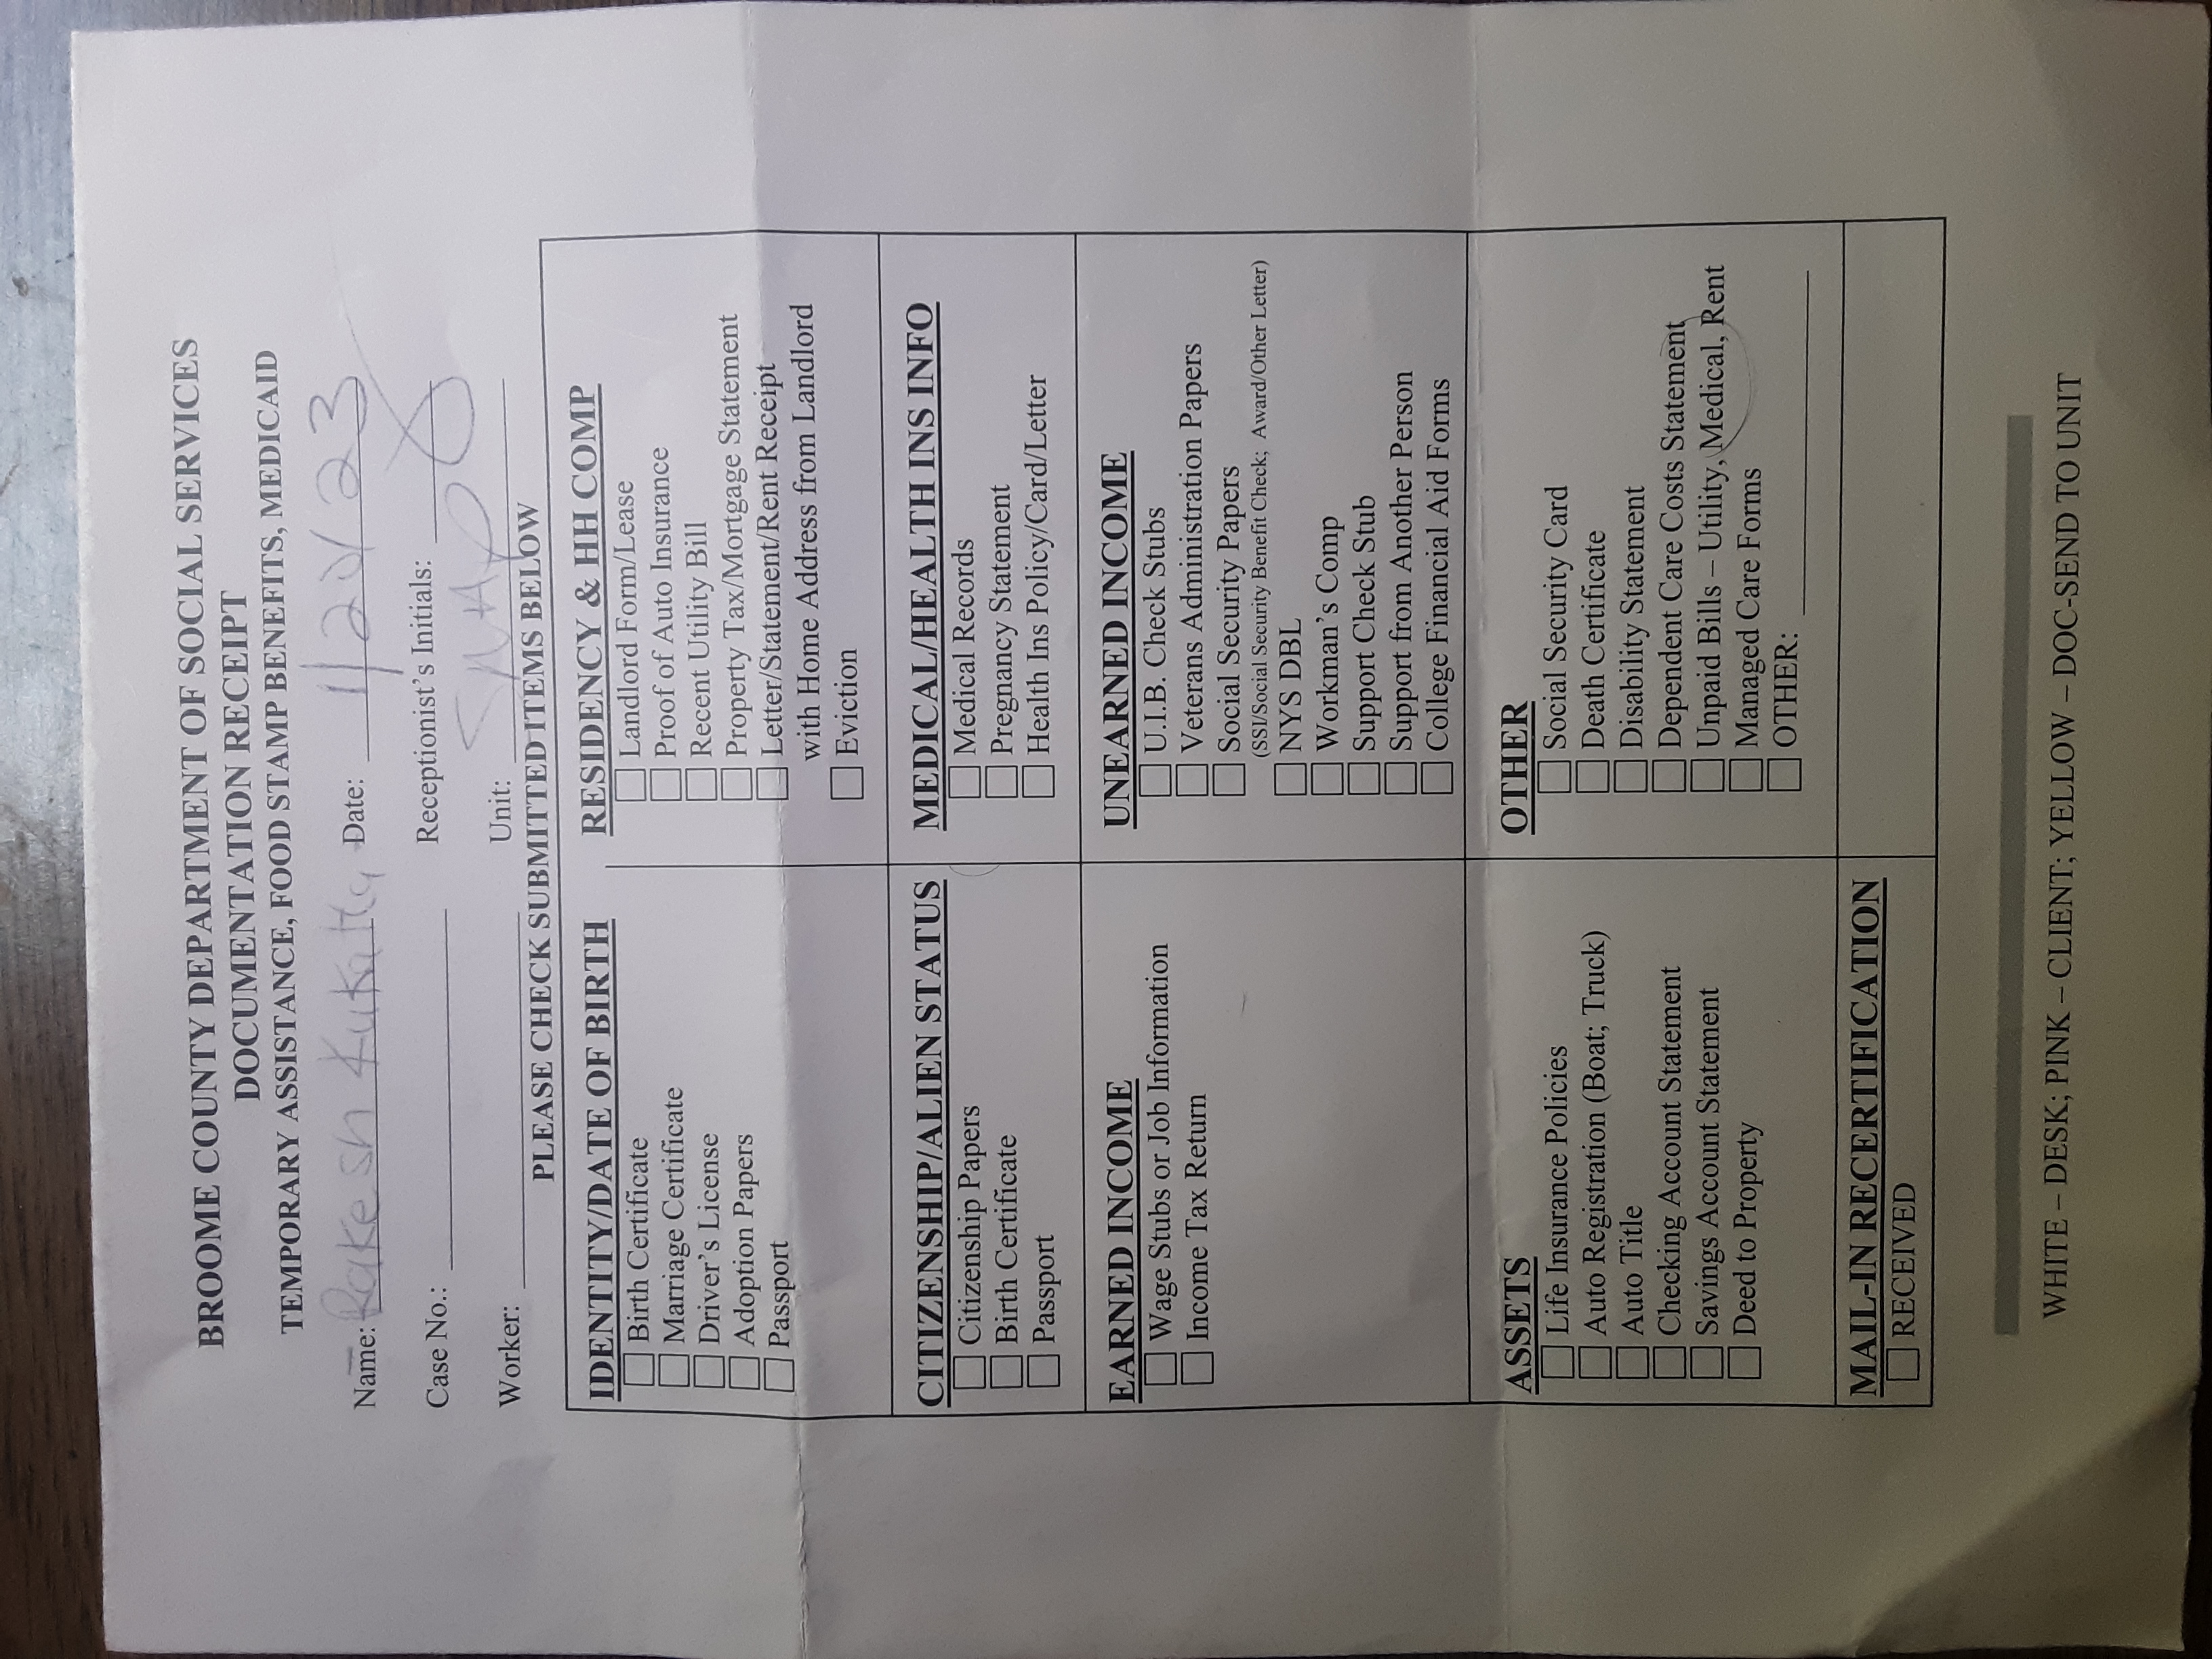 BROOME COUNTY DEPARTMENT OF SOCIAL SERVICES
DOCUMENTATION RECEIPT
TEMPORARY ASSISTANCE, FOOD STAMP BENEFITS, MEDICAID
Name: Rakesh Kukatla Date: 1/20/23
Case No.: Receptionist's Initials:
Worker: Unit: SNAP
PLEASE CHECK SUBMITTED ITEMS BELOW
IDENTITY/DATE OF BIRTH
Birth Certificate
Marriage Certificate
Driver's License
Adoption Papers
Passport
RESIDENCY & HH COMP
Landlord Form/Lease
Proof of Auto Insurance
Recent Utility Bill
Property Tax/Mortgage Statement
Letter/Statement/Rent Receipt
with Home Address from Landlord
Eviction
CITIZENSHIP/ALIEN STATUS
Citizenship Papers
Birth Certificate
Passport
MEDICAL/HEALTH INS INFO
Medical Records
Pregnancy Statement
Health Ins Policy/Card/Letter
EARNED INCOME
Wage Stubs or Job Information
Income Tax Return
UNEARNED INCOME
U.I.B. Check Stubs
Veterans Administration Papers
Social Security Papers
(SSI/Social Security Benefit Check; Award/Other Letter)
NYS DBL
Workman's Comp
Support Check Stub
Support from Another Person
College Financial Aid Forms
ASSETS
Life Insurance Policies
Auto Registration (Boat; Truck)
Auto Title
Checking Account Statement
Savings Account Statement
Deed to Property
OTHER
Social Security Card
Death Certificate
Disability Statement
Dependent Care Costs Statement
Unpaid Bills – Utility, Medical, Rent
Managed Care Forms
OTHER:
MAIL-IN RECERTIFICATION
RECEIVED
WHITE – DESK; PINK – CLIENT; YELLOW – DOC-SEND TO UNIT